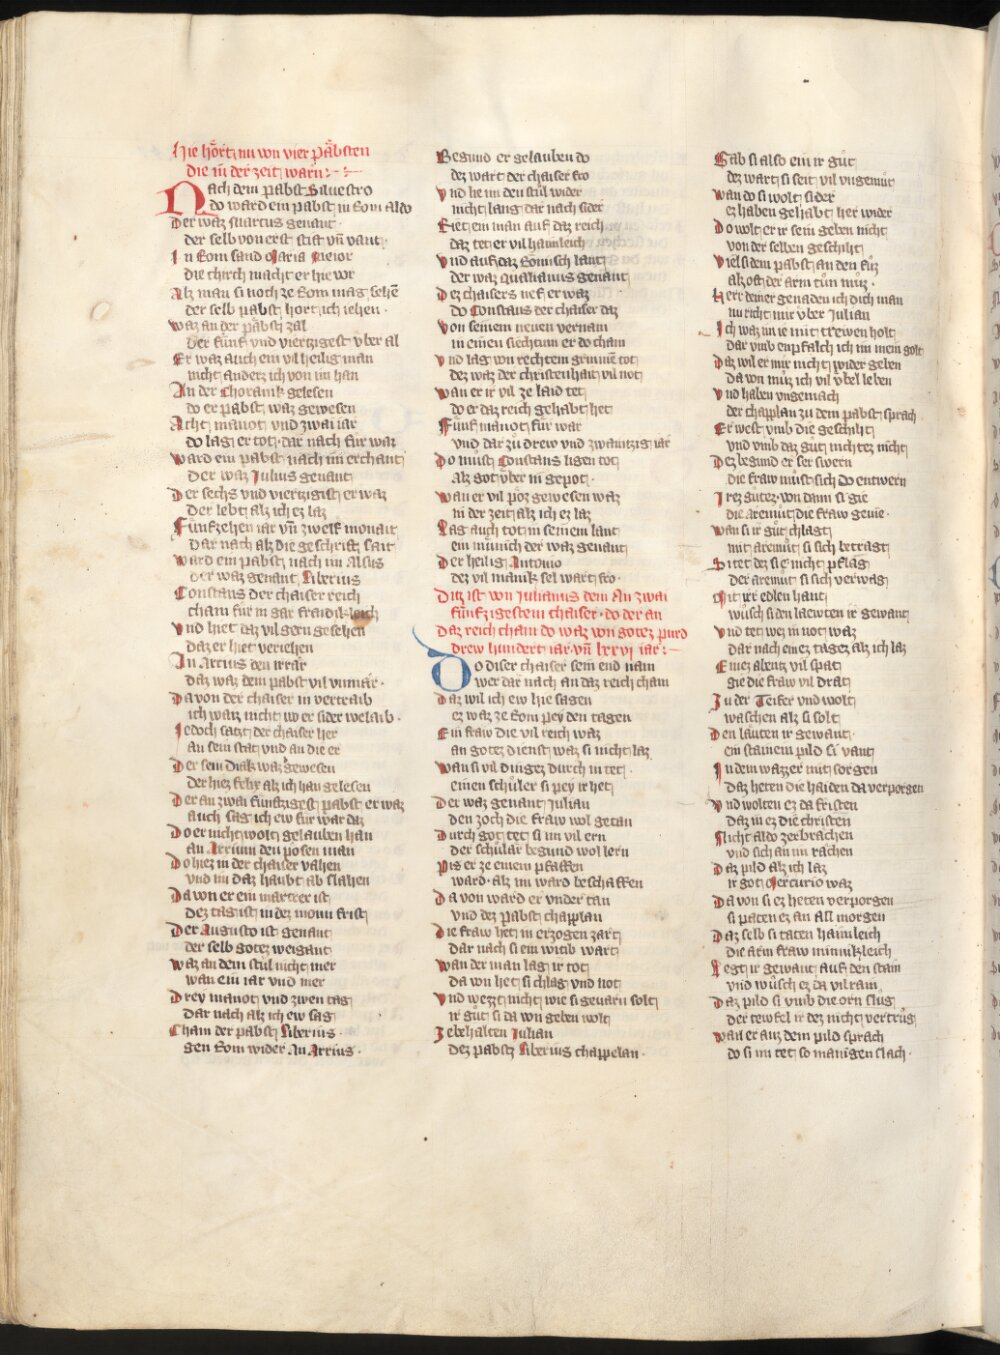 Hie hört nu von vier Päbsten
die in der zeit warn
Nach dem pabst Siluestro
do ward ein pabst in Rom aldo
Der waz Marcus genant
der selb von erst stift vn̄ vant
In Rom sand Maria Meior
die chirch macht er hie vor
Alz man si noch ze Rom mag sehē
der selb pabst hort ich iehen
waz an der päbst zal
der fünf vnd viertzigest vber al
Er waz auch ein vil heilig man
nicht anderz ich von im han
In der Choranik gelesen
do er pabst waz gewesen
Acht manot vnd zwai iar
do lag er tot dar nach für war
ward ein pabst nach im erchant
Der waz Julius genant
Der sechs vnd viertzigist er waz
der lebt alz ich ez laz
Fünfzehen iar vn̄ zwelf monait
Dar nach alz die geschrift sait
ward ein pabst nach im alsus
der waz genant Liberius
Constans der chaiser reich
cham für in gar fraidikleich
Vnd hiet daz vil gern gesehen
daz er hiet veriehen
In Arrius den irrär
daz waz dem pabst vil vnmär
Da von der chaiser in vertraib
ich waiz nicht wo er sider welaib
Jedoch satzt der chaiser her
an sein stat vnd an die er
Der sein Diak waz gewesen
der hiez felix alz ich han gelesen
Der an zwai fünftzigest pabst er waz
auch sag ich ew für war daz
Do er nicht wolt gelauben han
an Arrium den posen man
Do hiez in der chaiser vahen
vnd im daz haubt ab slahen
Da von er ein martrer ist
dez tag ist in dez monn frist
Der Augusto ist genant
der selb gotez weigant
waz an dem stul nicht mer
wan ein iar vnd mer
Drey manot vnd zwen tag
dar nach alz ich ew sag
Cham der pabst Liberius
gen Rom wider an Arrius
Begund er gelauben do
dez wart der chaiser fro
Vnd lie im den stul wider
nicht lang dar nach sider
Riet ein man auf daz reich
daz tet er vil haimleich
Vnd auf daz Römisch lant
der waz Qualianus genant
Dez chaisers nef er waz
do Constans der chaiser daz
Von seinem neuen vernam
in einen siechtum er do cham
Vnd lag von rechtem grimme tot
dez waz der christenhait vil not
wan er ir vil ze laid tet
do er daz reich gehabt het
Fünf manot für war
vnd dar zü drew vnd zwaintzig iar
Do müst Constans ligen tot
alz got vber in gepot
wan er vil pöz gewesen waz
in der zeit alz ich ez laz
Lag auch tot in seinem lant
ein münich der waz genant
Der heilig Antonio
dez vil manik sel wart fro
Ditz ist von Julianus dem An zwai
fünftzigestem chaiser do der an
Daz reich cham do waz von gotez purd
drew hundert iar vn̄ lxxvi iar
Do diser chaiser sein end nam
wer dar nach an daz reich cham
Daz wil ich ew hie sagen
ez waz ze Rom pey den tagen
Ein fraw die vil reich waz
an gotez dienst waz si nicht laz
wan si vil dingez durch in tet
einen schuler si pey ir het
Der waz genant Julian
den zoch die fraw wol getan
Durch got tet si im vil ern
der schular begund wol lern
Pis er ze einem pfaffen
ward alz im ward beschaffen
Da von ward er vnder tan
vnd dez pabst chapplan
Die fraw het in erzogen zart
dar nach si ein witib wart
wan der man lag ir tot
da von het si chlag vnd not
Vnd wezzt nicht wie si gevarn solt
ir gut si da von geben wolt
Ze behalten Julian
dez pabstz Liberius chappelan
Gab si also ein ir güt
dez wart si seit vil vngemüt
wan do si wolt sider
ez haben gehabt her wider
Do wolt er ir sein geben nicht
von der selben geschiht
Viel si dem pabst an den füz
alz oft der arm tün müz
Herr deiner genaden ich dich man
nu richt mir vber Julian
Ich waz im ie mit trewen holt
dar vmb enpfalch ich im mein golt
Daz wil er mir nicht wider geben
da von müz ich vil vbel leben
Vnd haben vngemach
der chapplan zu dem pabst sprach
Er west vmb die geschiht
vnd vmb daz güt nichtez nicht
Dez begund er ser swern
die fraw müst sich do entwern
Irez gütez von dann si gie
die aremüt die fraw gevie
wan si ir güt chlagt
mit aremüt si sich betragt
Sitet dez si e nicht pflag
der aremut si sich verwag
Mit ir edlen hant
wüsch si den laewten ir gewant
Vnd tet wez in not waz
dar nach einez tagez alz ich laz
Einez abentz vil spat
gie die fraw vil drat
In der Teifer vnd wolt
waschen alz si solt
Den läuten ir gewant
ein stainem pild si vant
In dem wazzer mit sorgen
daz heten die haiden da verporgen
Vnd wolten ez da fristen
daz in ez die christen
Nicht aldo zerbrachen
vnd sich an im rachen
Daz pild alz ich laz
ir got Mercurio waz
Da von si ez heten verporgen
si paten ez an all morgen
Daz selb si taten haimleich
die arm fraw minnikleich
Legt ir gewant auf den stain
vnd wüsch ez da vil rain
Daz pild si vmb die orn slug
der tewfel ir dez nicht vertrüg
wan er auz dem pild sprach
do si im tet so manigen slach